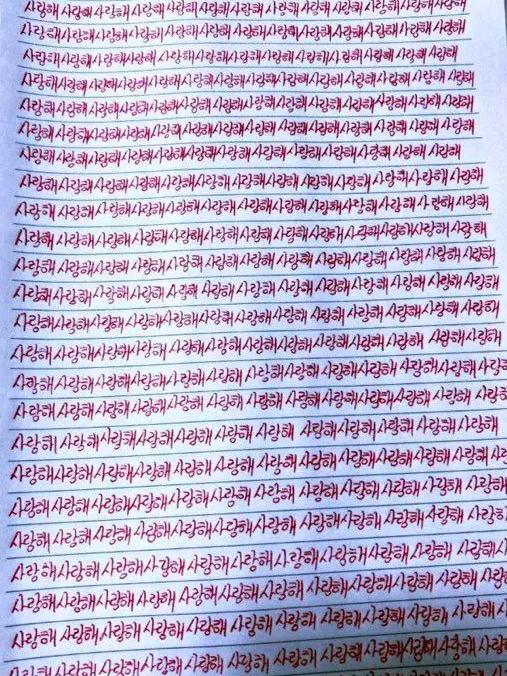 사랑해 사랑해 사랑해 사랑해 사랑해 사랑해 사랑해 사랑해 사랑해 사랑해 사랑해 사랑해 사랑해
사랑해 사랑해 사랑해 사랑해 사랑해 사랑해 사랑해 사랑해 사랑해 사랑해 사랑해 사랑해 사랑해
사랑해 사랑해 사랑해 사랑해 사랑해 사랑해 사랑해 사랑해 사랑해 사랑해 사랑해 사랑해 사랑해
사랑해 사랑해 사랑해 사랑해 사랑해 사랑해 사랑해 사랑해 사랑해 사랑해 사랑해 사랑해 사랑해 사랑해
사랑해 사랑해 사랑해 사랑해 사랑해 사랑해 사랑해 사랑해 사랑해 사랑해 사랑해 사랑해 사랑해 사랑해
사랑해 사랑해 사랑해 사랑해 사랑해 사랑해 사랑해 사랑해 사랑해 사랑해 사랑해 사랑해 사랑해 사랑해
사랑해 사랑해 사랑해 사랑해 사랑해 사랑해 사랑해 사랑해 사랑해 사랑해 사랑해 사랑해 사랑해
사랑해 사랑해 사랑해 사랑해 사랑해 사랑해 사랑해 사랑해 사랑해 사랑해 사랑해 사랑해 사랑해
사랑해 사랑해 사랑해 사랑해 사랑해 사랑해 사랑해 사랑해 사랑해 사랑해 사랑해 사랑해 사랑해
사랑해 사랑해 사랑해 사랑해 사랑해 사랑해 사랑해 사랑해 사랑해 사랑해 사랑해 사랑해 사랑해
사랑해 사랑해 사랑해 사랑해 사랑해 사랑해 사랑해 사랑해 사랑해 사랑해 사랑해 사랑해 사랑해
사랑해 사랑해 사랑해 사랑해 사랑해 사랑해 사랑해 사랑해 사랑해 사랑해 사랑해 사랑해 사랑해
사랑해 사랑해 사랑해 사랑해 사랑해 사랑해 사랑해 사랑해 사랑해 사랑해 사랑해 사랑해 사랑해
사랑해 사랑해 사랑해 사랑해 사랑해 사랑해 사랑해 사랑해 사랑해 사랑해 사랑해 사랑해
사랑해 사랑해 사랑해 사랑해 사랑해 사랑해 사랑해 사랑해 사랑해 사랑해 사랑해 사랑해
사랑해 사랑해 사랑해 사랑해 사랑해 사랑해 사랑해 사랑해 사랑해 사랑해 사랑해 사랑해
사랑해 사랑해 사랑해 사랑해 사랑해 사랑해 사랑해 사랑해 사랑해 사랑해 사랑해 사랑해
사랑해 사랑해 사랑해 사랑해 사랑해 사랑해 사랑해 사랑해 사랑해 사랑해 사랑해 사랑해
사랑해 사랑해 사랑해 사랑해 사랑해 사랑해 사랑해 사랑해 사랑해 사랑해 사랑해 사랑해
사랑해 사랑해 사랑해 사랑해 사랑해 사랑해 사랑해 사랑해 사랑해 사랑해 사랑해
사랑해 사랑해 사랑해 사랑해 사랑해 사랑해 사랑해 사랑해 사랑해 사랑해 사랑해
사랑해 사랑해 사랑해 사랑해 사랑해 사랑해 사랑해 사랑해 사랑해 사랑해 사랑해
사랑해 사랑해 사랑해 사랑해 사랑해 사랑해 사랑해 사랑해 사랑해 사랑해 사랑해
사랑해 사랑해 사랑해 사랑해 사랑해 사랑해 사랑해 사랑해 사랑해 사랑해 사랑해